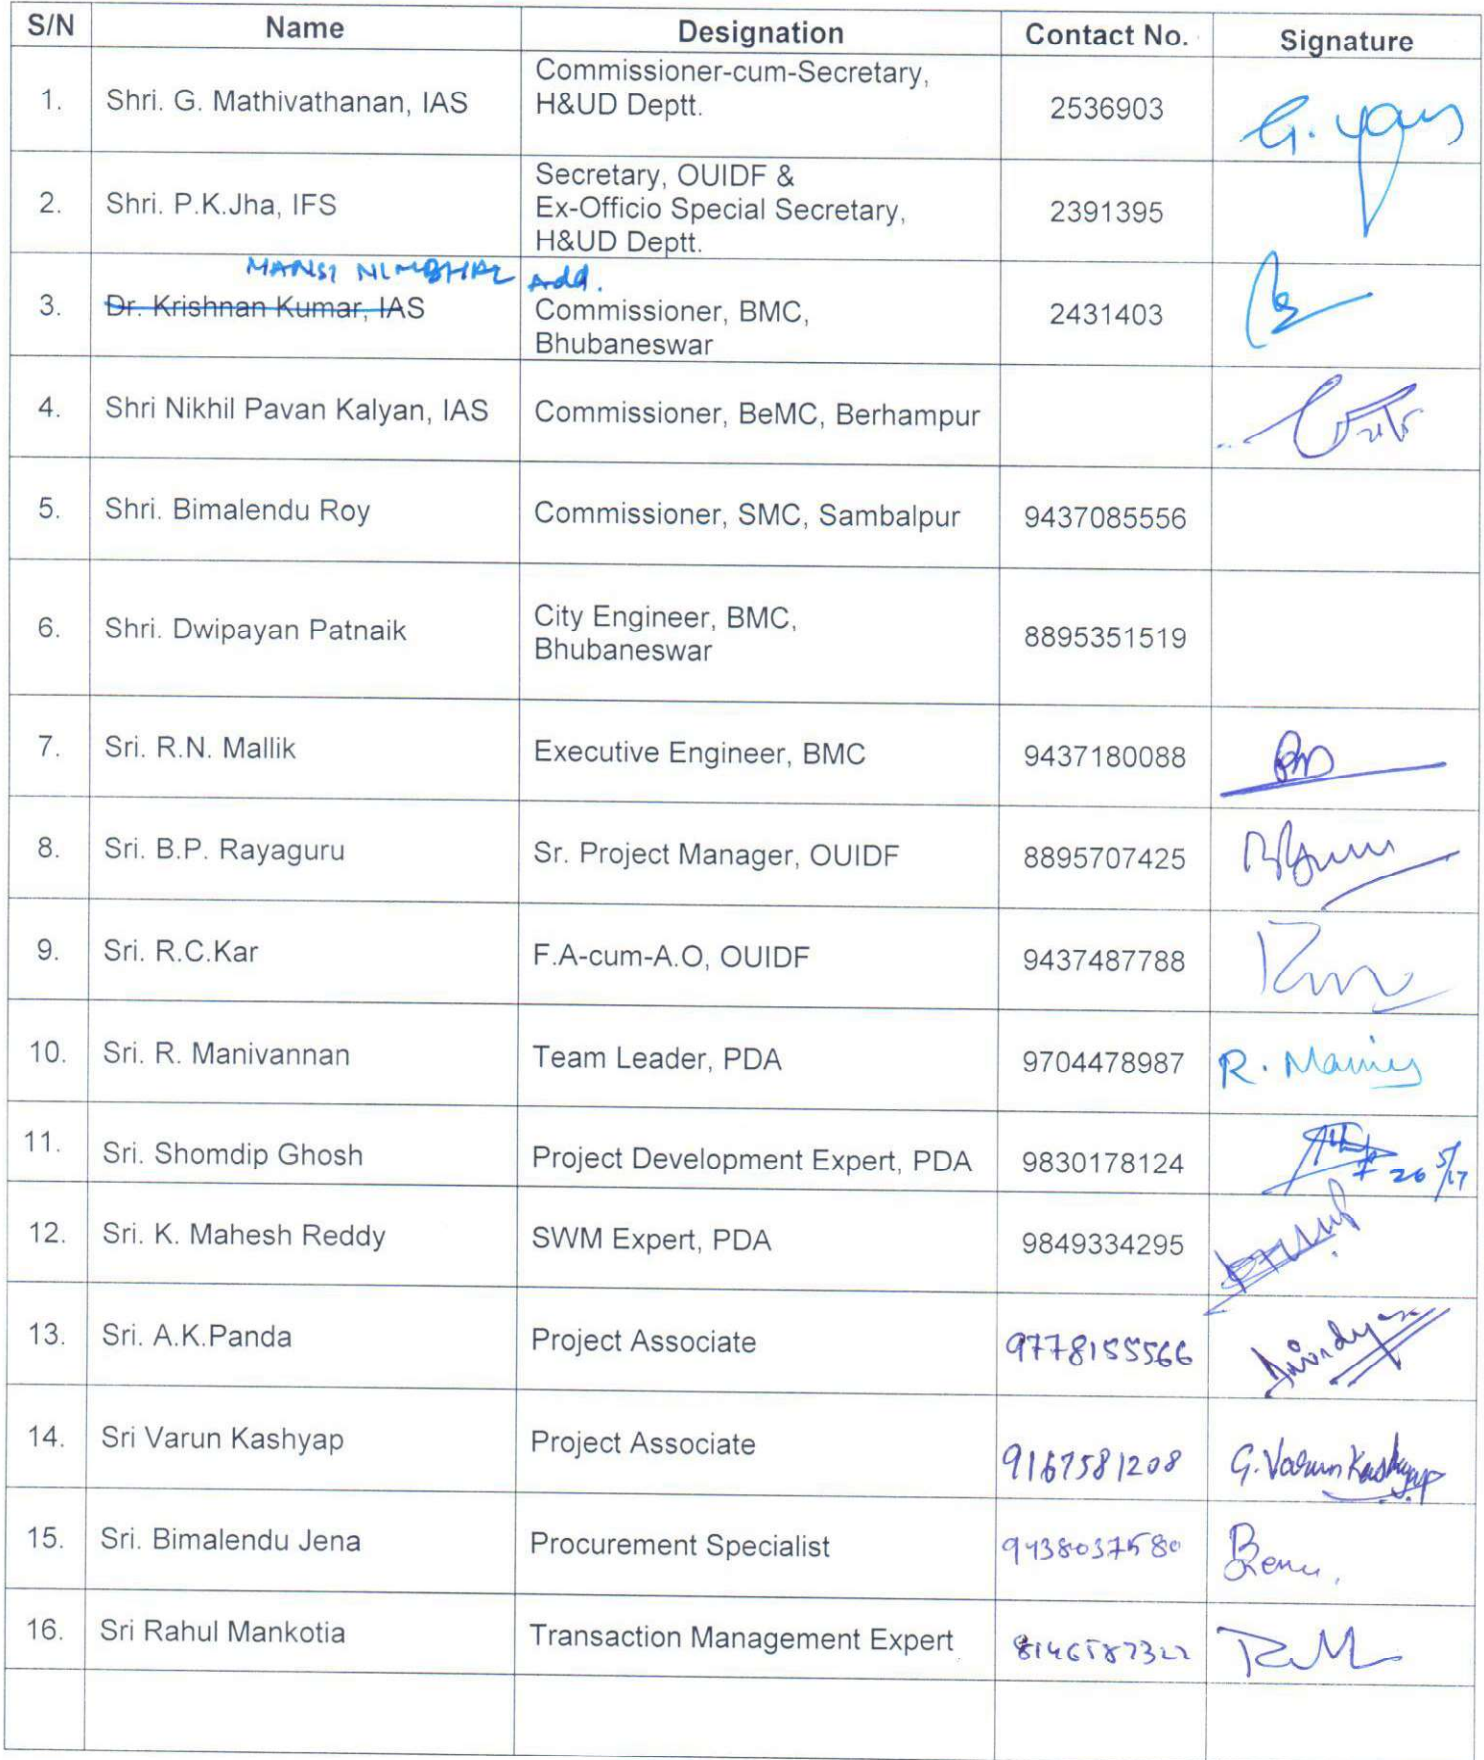 S/N Name Designation Contact No. Signature
1. Shri. G. Mathivathanan, IAS Commissioner-cum-Secretary, H&UD Deptt. 2536903
2. Shri. P.K.Jha, IFS Secretary, OUIDF & Ex-Officio Special Secretary, H&UD Deptt. 2391395
MANSI NIMBHAL Add.
3. Dr. Krishnan Kumar, IAS Commissioner, BMC, Bhubaneswar 2431403
4. Shri Nikhil Pavan Kalyan, IAS Commissioner, BeMC, Berhampur
5. Shri. Bimalendu Roy Commissioner, SMC, Sambalpur 9437085556
6. Shri. Dwipayan Patnaik City Engineer, BMC, Bhubaneswar 8895351519
7. Sri. R.N. Mallik Executive Engineer, BMC 9437180088
8. Sri. B.P. Rayaguru Sr. Project Manager, OUIDF 8895707425
9. Sri. R.C.Kar F.A-cum-A.O, OUIDF 9437487788
10. Sri. R. Manivannan Team Leader, PDA 9704478987
11. Sri. Shomdip Ghosh Project Development Expert, PDA 9830178124 26/5/17
12. Sri. K. Mahesh Reddy SWM Expert, PDA 9849334295
13. Sri. A.K.Panda Project Associate 9778155566
14. Sri Varun Kashyap Project Associate 9167581208 G. Varun Kashyap
15. Sri. Bimalendu Jena Procurement Specialist 9438037580
16. Sri Rahul Mankotia Transaction Management Expert 8146587322